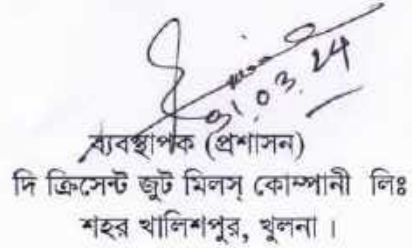 31.03.24
ব্যবস্থাপক (প্রশাসন)
দি ক্রিসেন্ট জুট মিলস্ কোম্পানী লিঃ
শহর খালিশপুর, খুলনা ।